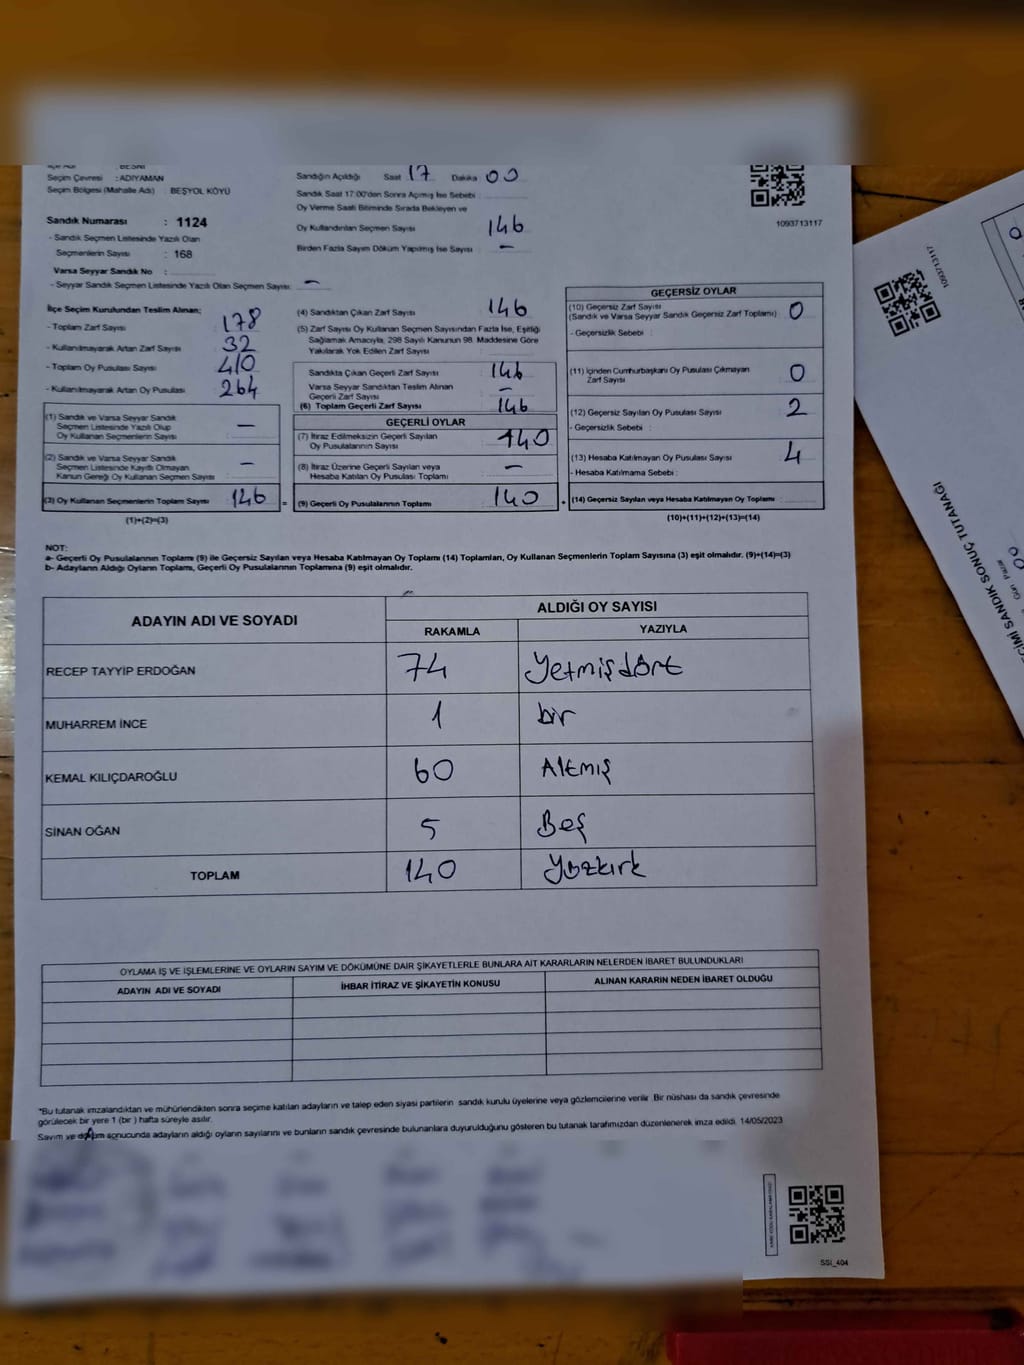 İlçe Adı : BESNİ
Seçim Çevresi : ADIYAMAN
Seçim Bölgesi (Mahalle Adı) : BEŞYOL KÖYÜ
Sandık Numarası : 1124
- Sandık Seçmen Listesinde Yazılı Olan
Seçmenlerin Sayısı : 168
Varsa Seyyar Sandık No :
- Seyyar Sandık Seçmen Listesinde Yazılı Olan Seçmen Sayısı: —
Sandığın Açıldığı Saat 17 Dakika 00
Sandık Saat 17:00'den Sonra Açılmış İse Sebebi :
Oy Verme Saati Bitiminde Sırada Bekleyen ve
Oy Kullandırılan Seçmen Sayısı 146
Birden Fazla Sayım Döküm Yapılmış İse Sayısı : —
1093713117
İlçe Seçim Kurulundan Teslim Alınan;
- Toplam Zarf Sayısı 178
- Kullanılmayarak Artan Zarf Sayısı 32
- Toplam Oy Pusulası Sayısı 410
- Kullanılmayarak Artan Oy Pusulası 264
(1) Sandık ve Varsa Seyyar Sandık
Seçmen Listesinde Yazılı Olup
Oy Kullanan Seçmenlerin Sayısı —
(2) Sandık ve Varsa Seyyar Sandık
Seçmen Listesinde Kayıtlı Olmayan
Kanun Gereği Oy Kullanan Seçmen Sayısı —
(3) Oy Kullanan Seçmenlerin Toplam Sayısı 146 =
(1)+(2)=(3)
(4) Sandıktan Çıkan Zarf Sayısı 146
(5) Zarf Sayısı Oy Kullanan Seçmen Sayısından Fazla İse, Eşitliği
Sağlamak Amacıyla, 298 Sayılı Kanunun 98. Maddesine Göre
Yakılarak Yok Edilen Zarf Sayısı :
Sandıkta Çıkan Geçerli Zarf Sayısı 146
Varsa Seyyar Sandıktan Teslim Alınan
Geçerli Zarf Sayısı —
(6) Toplam Geçerli Zarf Sayısı 146
GEÇERLİ OYLAR
(7) İtiraz Edilmeksizin Geçerli Sayılan
Oy Pusulalarının Sayısı 140
(8) İtiraz Üzerine Geçerli Sayılan veya
Hesaba Katılan Oy Pusulası Toplamı —
(9) Geçerli Oy Pusulalarının Toplamı 140 +
GEÇERSİZ OYLAR
(10) Geçersiz Zarf Sayısı
(Sandık ve Varsa Seyyar Sandık Geçersiz Zarf Toplamı) : 0
- Geçersizlik Sebebi :
(11) İçinden Cumhurbaşkanı Oy Pusulası Çıkmayan
Zarf Sayısı 0
(12) Geçersiz Sayılan Oy Pusulası Sayısı 2
- Geçersizlik Sebebi :
(13) Hesaba Katılmayan Oy Pusulası Sayısı 4
- Hesaba Katılmama Sebebi :
(14) Geçersiz Sayılan veya Hesaba Katılmayan Oy Toplamı :
(10)+(11)+(12)+(13)=(14)
NOT:
a- Geçerli Oy Pusulalarının Toplamı (9) ile Geçersiz Sayılan veya Hesaba Katılmayan Oy Toplamı (14) Toplamları, Oy Kullanan Seçmenlerin Toplam Sayısına (3) eşit olmalıdır. (9)+(14)=(3)
b- Adayların Aldığı Oyların Toplamı, Geçerli Oy Pusulalarının Toplamına (9) eşit olmalıdır.
ADAYIN ADI VE SOYADI
ALDIĞI OY SAYISI
RAKAMLA YAZIYLA
RECEP TAYYİP ERDOĞAN 74 Yetmişdört
MUHARREM İNCE 1 bir
KEMAL KILIÇDAROĞLU 60 Altmış
SİNAN OĞAN 5 Beş
TOPLAM 140 Yüzkırk
OYLAMA İŞ VE İŞLEMLERİNE VE OYLARIN SAYIM VE DÖKÜMÜNE DAİR ŞİKAYETLERLE BUNLARA AİT KARARLARIN NELERDEN İBARET BULUNDUKLARI
ADAYIN ADI VE SOYADI İHBAR İTİRAZ VE ŞİKAYETİN KONUSU ALINAN KARARIN NEDEN İBARET OLDUĞU
*Bu tutanak imzalandıktan ve mühürlendikten sonra seçime katılan adayların ve talep eden siyasi partilerin sandık kurulu üyelerine veya gözlemcilerine verilir. Bir nüshası da sandık çevresinde
görülecek bir yere 1 (bir ) hafta süreyle asılır.
Sayım ve döküm sonucunda adayların aldığı oyların sayılarını ve bunların sandık çevresinde bulunanlara duyurulduğunu gösteren bu tutanak tarafımızdan düzenlenerek imza edildi. 14/05/2023
SSI_404
1093713117
ÇİMİ SANDIK SONUÇ TUTANAĞI
Gün Pazar